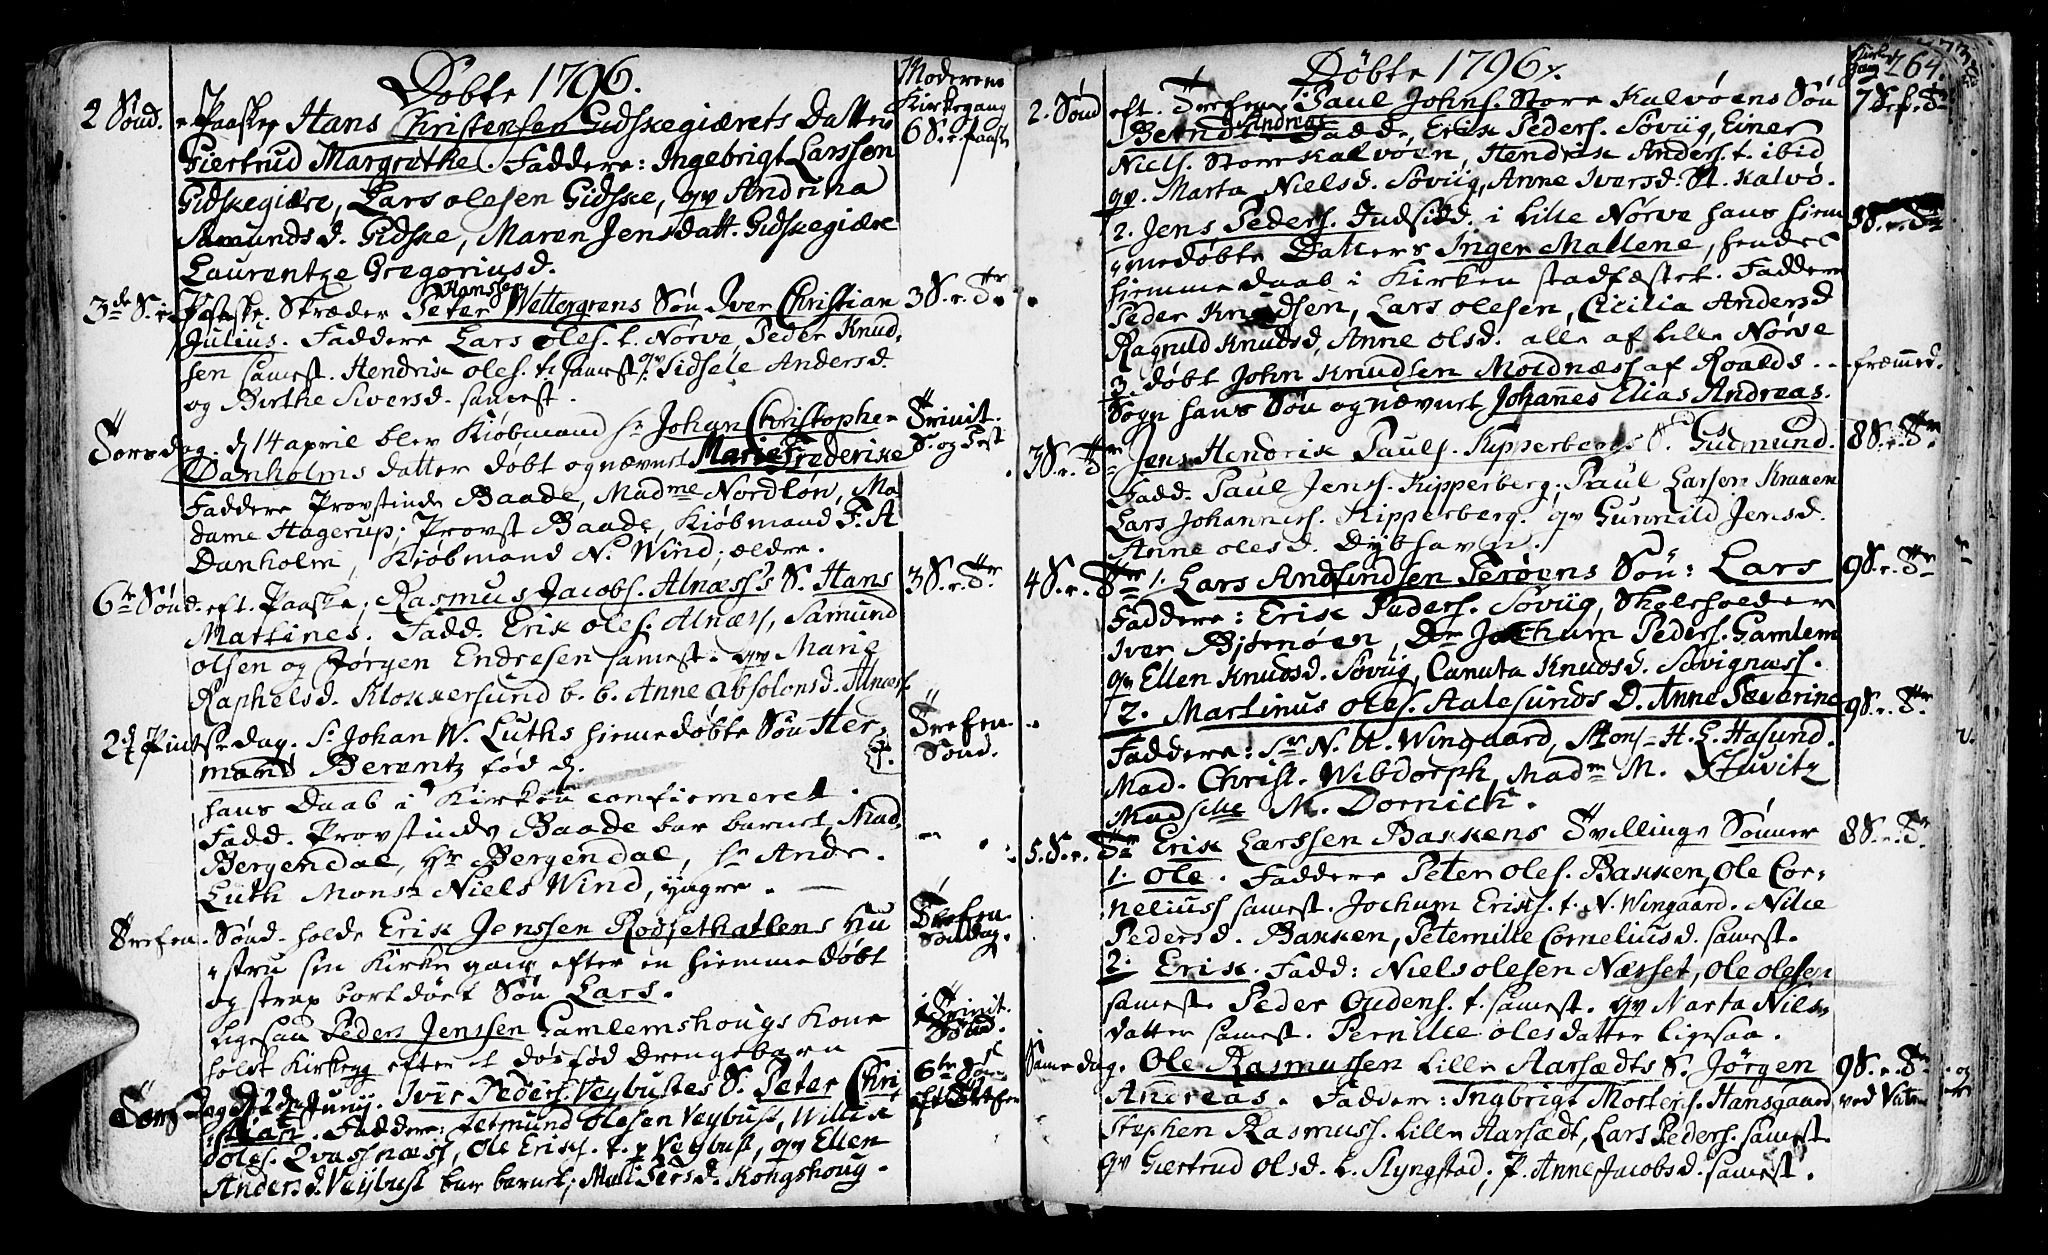 Døbte 1796.
Moderens
Kirkegang
2 Sönd. e. Paaske, Hans Christensen Gidskegiærets Datter
6 S. e. Paask
Giertrud Margrethe. Faddere: Ingebrigt Larssen
Gidskegiære, Lars olesen Gidske, qv Andrina
Amundsd. Gidske, Maren Jensdatt. Gidskegiære
Laurentze Gregoriusd.
Hanssen
3de S. e. Paaske. Skræder Peter Wettergrens Søn Iver Christian
3 S. e. Tr.
Julius. Faddere Lars oles. t. Nørve, Peder Knud,
sen samest. Hendrik oles. t. samest. qv Sidsele Andersd.
og Birthe Siversd. samest.
Torsdag. d 14 april blev Kiöbmand Sr Johan Christopher
Trinit.
S. og Fest
Danholms datter døbt og nævnet Marie Frederike
Faddere Provstinde Baade, Madme Nordløn, Ma
dame Hagerup; Provst Baade, Kiöbmand F. A
Danholm, Kiöbmand N. Wind, ældre.
6te Sönd. eft. Paaske, Rasmus Jacobs. Alnæss's S. Hans
3 S. e. Tr.
Martines. Fadd. Erik oles. Alnæss, Samund
olsen og Jørgen Endresen samest. qv Marie
Raphelsd. Klokkersund b. b. Anne Absolonsd. Alnæss.
2d Pintsedag. Sr Johan W. Luths hiemedøbte Søn Her
Trefen.
Sönd.
mand Berentz fød d.
hans Daab i Kirken confirmeret.
Fadd. Provstinde Baade bar barnet, Mad.
Bergendal, Hr Bergendal, Sr Andr.
Luth Monsr Niels Wind, yngre.
Trefen. Sönd. holdt Erik Jenssen Rödsethatlens Hu
Trefen.
Söndag.
stru sin Kirkegang efter en hiemmedøbt
og strax bortdöet Sön Lars.
Ligesaa Peder Jenssen Gamlemshougs Kone
Trinit.
Sönd.
holdt Kirkegg efter et dødfød Drengebarn
Torsdag d 2den Junij. Iver Peders. Veybustes S. Peter Chri
6te Søn
eft Trefen
stian. Faddere: Jetmund Olesen Veybust, Willik
oles. Qvassnæss, Ole Eriks. t. p Veybust, qv Ellen
Andersd. Veybust bar barnet, Mali Persd. Kongshoug.
Døbte 1796.
Kirke
gang
264.
2. Sönd eft. Trefen. 1. Paul Johns. Store Kalvöens Sön
7 S. ef. Tr
Bernt Andreas Fadde, Erik Peders. Søviig, Einer
Niels. Store Kalvöen, Hendrik Anders. t. ibid
qv. Marta Nielsd. Søviig, Anne Iversd. St. Kalvø.
2. Jens Peders. Indsidd. i Lille Nørve hans hiem
5 S. e. Tr
medøbte Datters Inger Mallene, hendes
hiemmedaab i Kirken stadfæstet. Faddere
Peder Knudsen, Lars olesen, Cicilia Andersd
Ragnild Knudsd, Anne olsd. alle af Lille Nørve
3. døbt John Knudsen Moldnæss af Roalds.
fræmmed.
Sogn hans Sön og nævnet Johannes Elias Andreas.
3 S. e. Tr Jens Hendrik Pauls. Kipperbergs S. Gudmund.
8 S. e. Tr.
Fadd. Paul Jenss. Kipperberg, Paul Larsen Kraaen
Lars Johanners. Kipperberg. qv Gunnild Jensd.
Anne olesd. Dybhavn.
4 S. e. Tr 1. Lars Amundsen Perøens Søn: Lars
9 S. e. Tr
Faddere: Erik Peders. Søviig, Skoleholder
Iver Bjørnøen, Dr Jochum Peders. Gamlem
qv Ellen Knudsd. Søviig, Canuta Knudsd. Søvignæss.
2. Martinus oles. Aalesunds D. Anne Severine
9 S. e. Tr.
Faddere: Sr N. U. Wingaard, Mons. H. L. Hasund.
Mad. Christ. Wibdorph, Madm M. Stuvitz
Madselle M. Dornick.
5. S. e. Tr Erik Larssen Bakkens Tvillinge Sønner
8 S. e. Tr.
1. Ole. Faddere Peter Oles. Bakken, Ole Cor-
neliuss samest. Jochum Eriks. t. N. Wingaard. Nille
Pedersd. Bakken, Peternille Corneliusd. samest.
2. Erik. Fadd: Niels olesen Næsset, Ole olesen
samest. Peder Oudens. t. samest. qv Marta Niels
datter samest. Pernille olesdatter ligesaa.
Samedag. Ole Rasmussen Lille Aarsædts S. Jørgen
9 S. e. Tr.
Andreas. Faddere: Ingbrigt Morters. Hansgaard
ved Vatne
Stephen Rasmuss. Lille Aarsædt, Lars Peders. samest.
qv Giertrud Olsd. L. Slyngstad, P. Anne Jacobsd. samest.